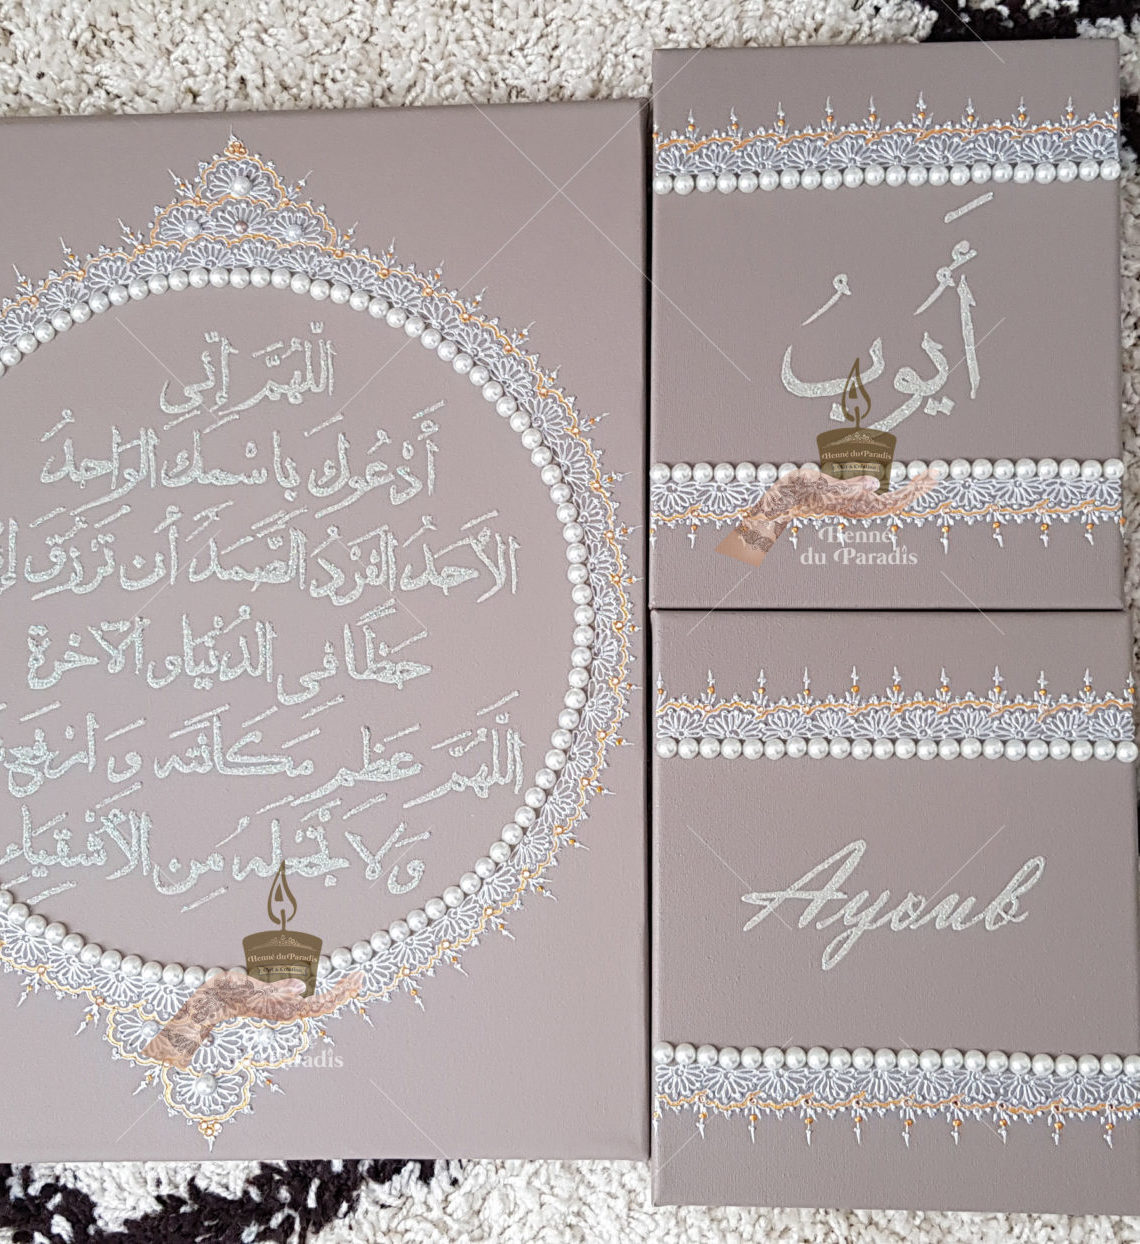 اللّٰهُمَّ إِنّي
أَدْعُوكَ بِاسْمِكَ الوَاحِدُ
الأَحَدُ الفَرْدُ الصَّمَدَ أَن تَرْزُقَ
حَظًّا فِي الدُنْيَا و الآخرة
اللَّهُمَّ عَظِّم مَكَانَته وَ ارْفع
وَلَا تَجْعَله مِن الأَشْقِيَاءِ
Henné du Paradis
أَيُّوبُ
Henné du Paradis
Art & Création
Henné
du Paradis
Ayoub